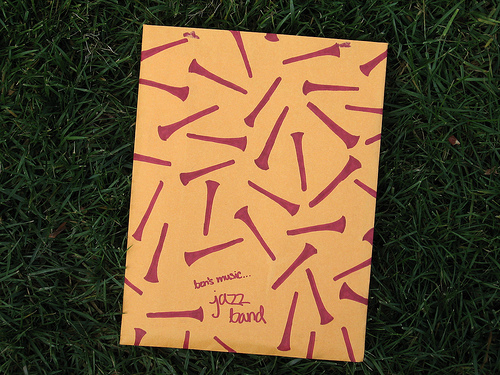 ben's music...
jazz
band